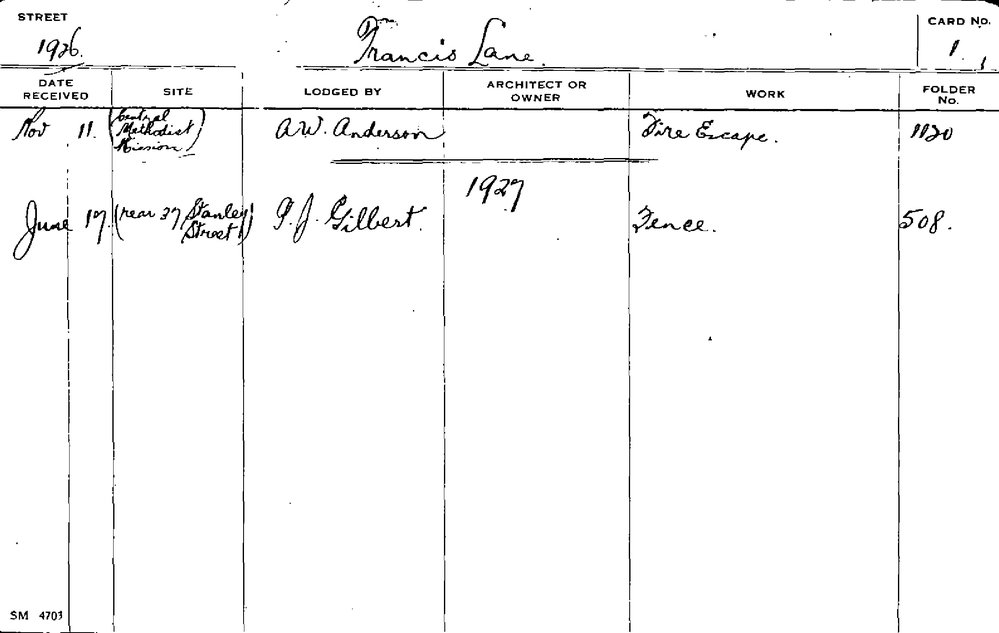 STREET
1926.
Francis Lane.
CARD NO.
1.
DATE RECEIVED
SITE
LODGED BY
ARCHITECT OR OWNER
WORK
FOLDER NO.
Nov 11. (Central Methodist Mission) A.W. Anderson Fire Escape. 1120
1927
June 17. (rear 37 Stanley Street) P.J. Gilbert. Fence. 508.
SM 4703